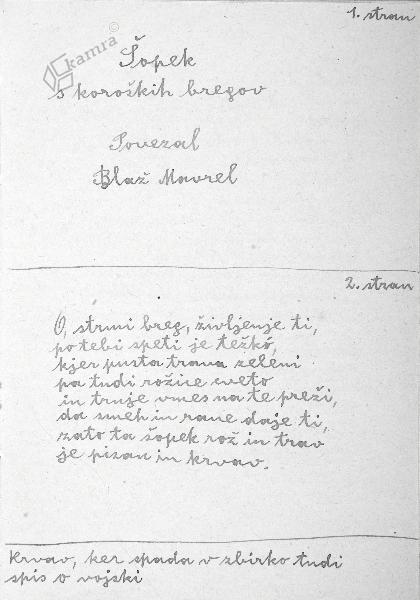 1. stran
kamra
Šopek
s koroških bregov
Povezal
Blaž Mavrel
2. stran
O, strmi breg, življenje ti,
po tebi speti je težkó,
kjer pusta trava zeleni
pa tudi rožice cveto
in trnje vmes na te preži,
da smeh in rane daje ti,
zato ta šopek rož in trav
je pisan in krvav.
Krvav, ker spada v zbirko tudi
spis o vojski